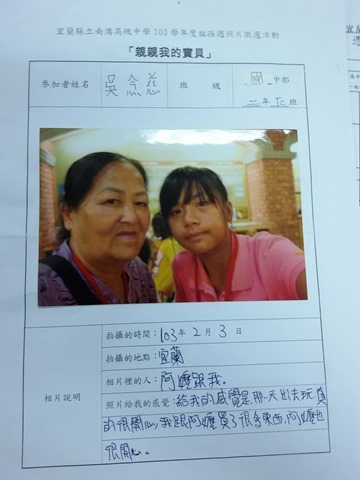 宜蘭縣立南澳高級中學103學年度祖孫週照片徵選活動
「親親我的寶貝」
參加者姓名 吳念慈 班 級 國中部
二年仁班
拍攝的時間：103年 2月 3日
拍攝的地點：宜蘭
相片裡的人：阿嬤跟我。
相片說明
照片給我的感覺：給我的感覺是那一天出去玩真
的很開心，我跟阿嬤買了很多東西，阿嬤也
很開心。